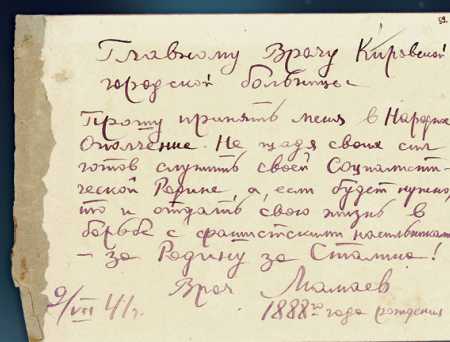 59.
Главному Врачу Кировской
городской больницы
Прошу принять меня в Народное
Ополчение. Не щадя своих сил
готов служить своей Социалисти-
ческой Родине, а, если будет нужно,
то и отдать свою жизнь в
борьбе с фашистскими
– за Родину за Сталина!
Врач Мамаев
9/VII 41 г. 1888го года рождения